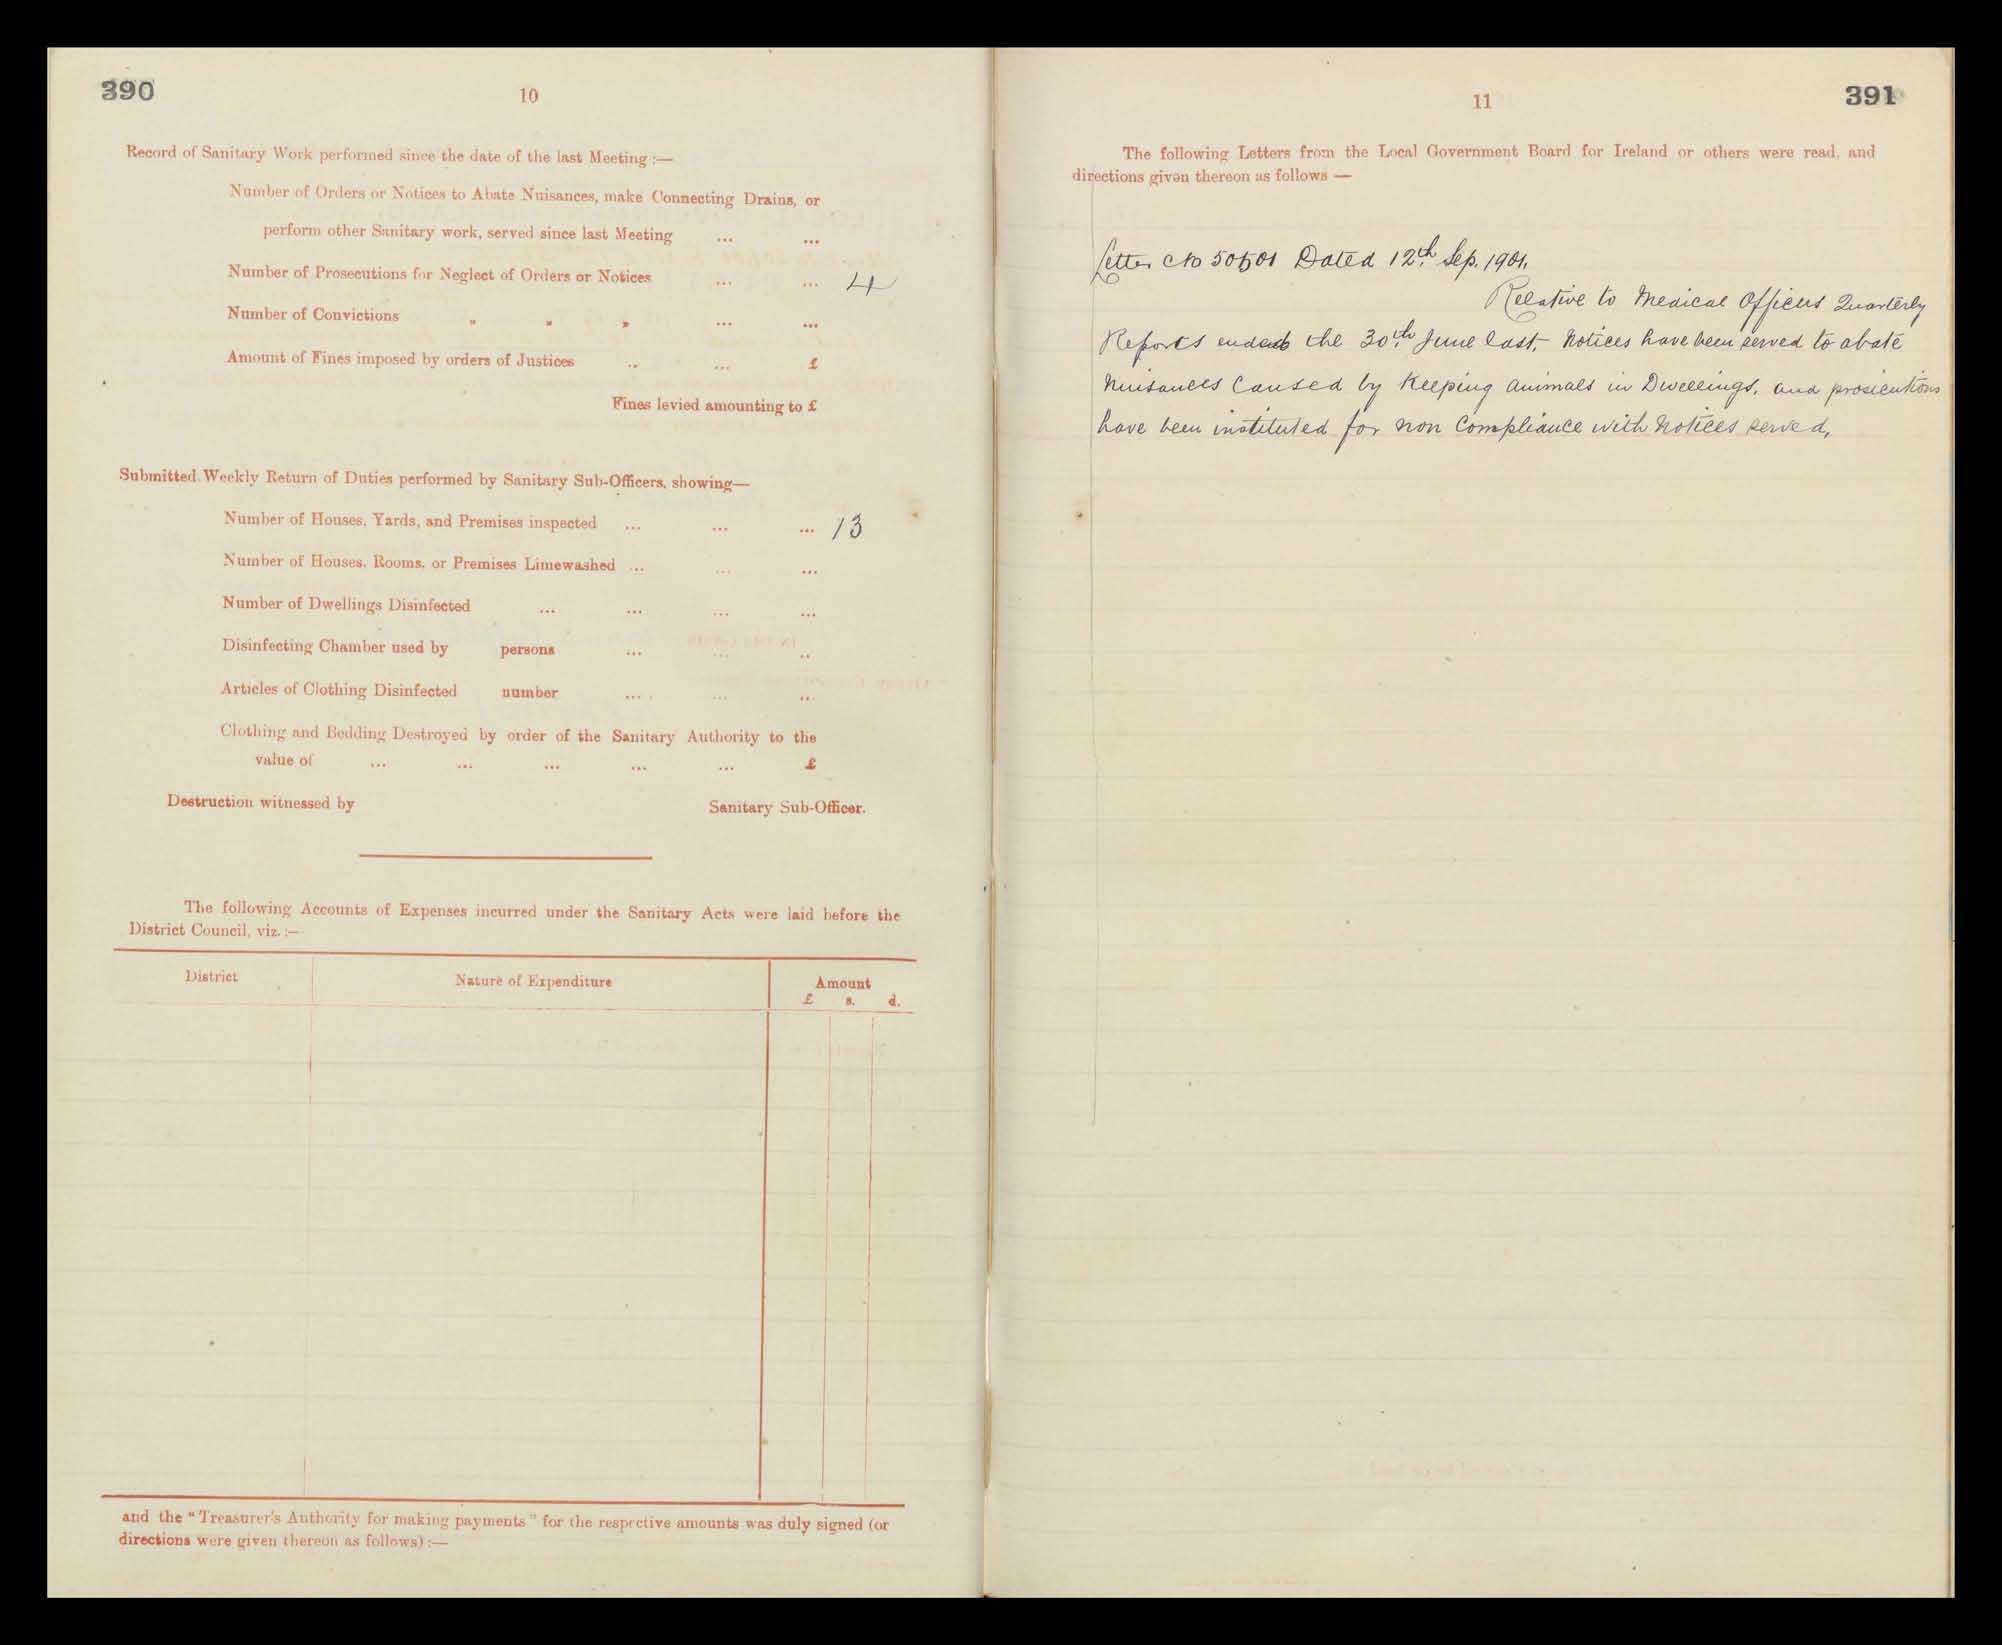 390
10
Record of Sanitary Work performed since the date of the last Meeting :—
Number of Orders or Notices to Abate Nuisances, make Connecting Drains, or
perform other Sanitary work, served since last Meeting ... ...
Number of Prosecutions for Neglect of Orders or Notices ... ... 4
Number of Convictions " " " ... ...
Amount of Fines imposed by orders of Justices .. ... £
Fines levied amounting to £
Submitted Weekly Return of Duties performed by Sanitary Sub-Officers, showing—
Number of Houses, Yards, and Premises inspected ... ... ... 13
Number of Houses, Rooms, or Premises Limewashed ... ... ...
Number of Dwellings Disinfected ... ... ... ...
Disinfecting Chamber used by persons ... ... ..
Articles of Clothing Disinfected number ... ... ...
Clothing and Bedding Destroyed by order of the Sanitary Authority to the
value of ... ... ... ... ... £
Destruction witnessed by Sanitary Sub-Officer.
The following Accounts of Expenses incurred under the Sanitary Acts were laid before the
District Council, viz. :—
District Nature of Expenditure Amount
£ s. d.
and the "Treasurer's Authority for making payments" for the respective amounts was duly signed (or
directions were given thereon as follows) :—
391
11
The following Letters from the Local Government Board for Ireland or others were read, and
directions given thereon as follows —
Letter No Dated 12th Sep. 1901.
Relative to Medical Officers Quarterly
Reports the 30th June last. Notices have been served to abate
Nuisances Caused by Keeping animals in Dwellings, and prosicutions
have been instituted for non Compliance with Notices served,